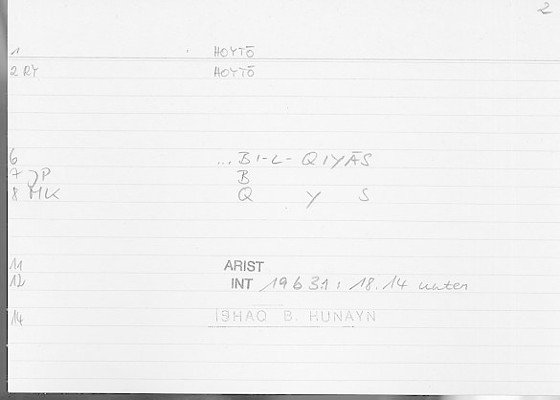 2
1 HOYTŌ
2 RY HOYTŌ
6 ... B I-L- QIYĀS
7 JP B
8 MK Q Y S
11 ARIST
12 INT 19631: 18.14 unten
14 ISHAQ B. HUNAYN